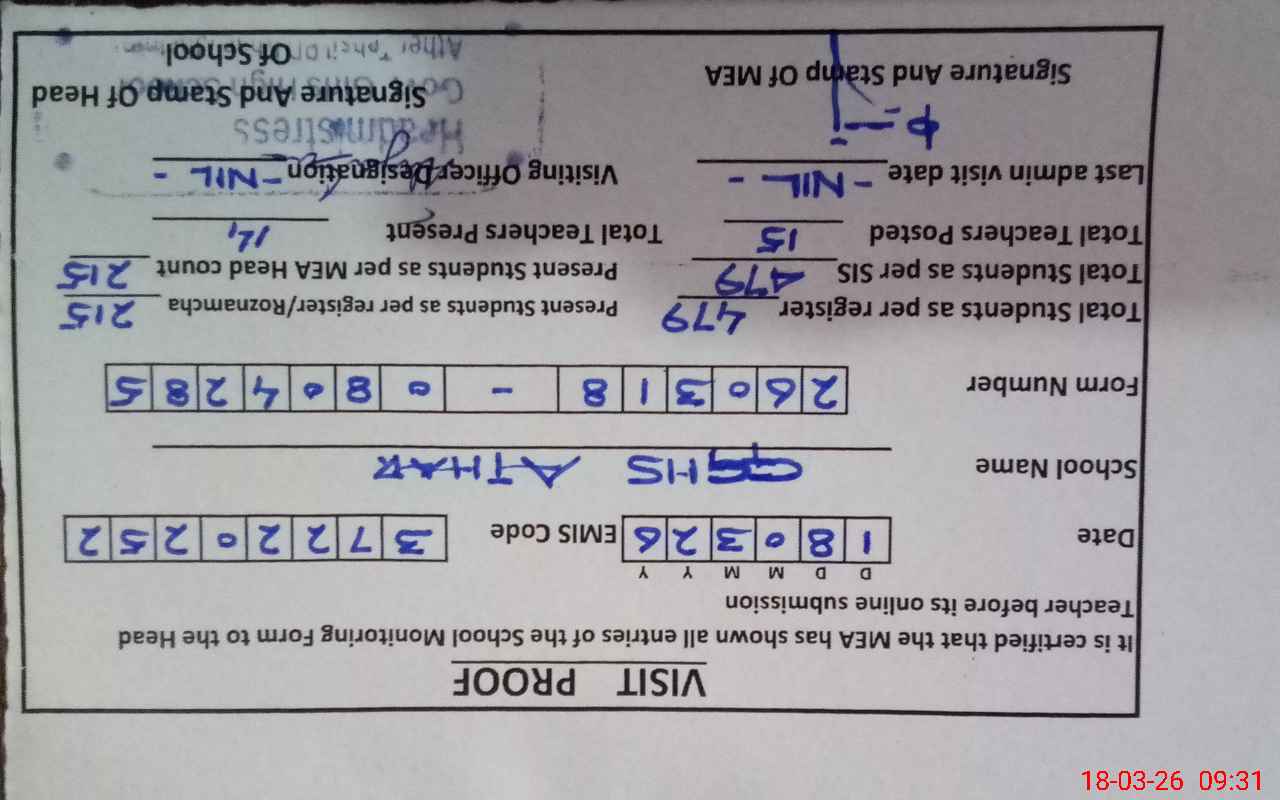 VISIT PROOF
It is certified that the MEA has shown all entries of the School Monitoring Form to the Head
Teacher before its online submission
D D M M Y Y
Date 1 8 0 3 2 6 EMIS Code 3 7 2 2 0 2 5 2
School Name GGHS ATHAR
Form Number 2 6 0 3 1 8 - 0 8 0 4 2 8 5
Total Students as per register 479 Present Students as per register/Roznamcha 215
Total Students as per SIS 479 Present Students as per MEA Head count 215
Total Teachers Posted 15 Total Teachers Present 14
Last admin visit date - NIL - Visiting Officer Designation - NIL -
Headmistress
Govt Girls High School
Signature And Stamp Of MEA Signature And Stamp Of Head
Of School
18-03-26 09:31